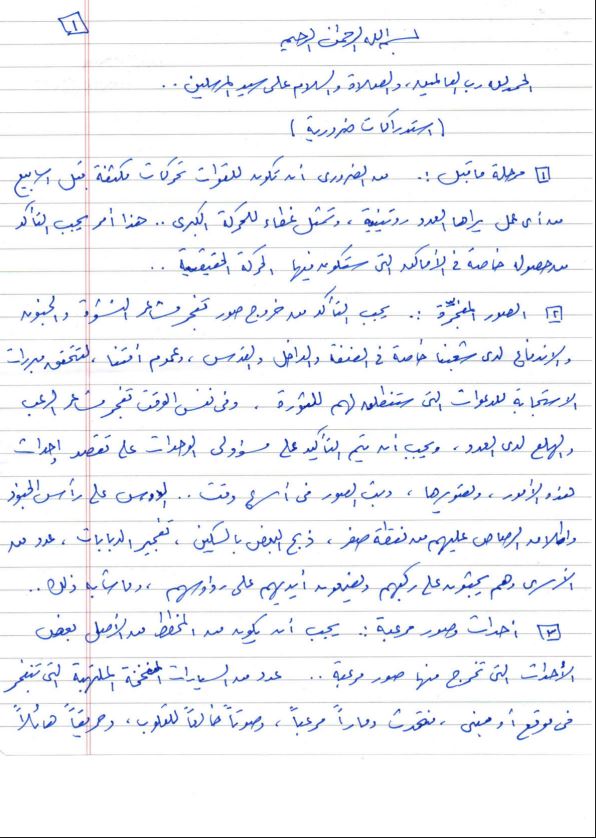 ١
بسم الله الرحمن الرحيم
الحمد لله رب العالمين، والصلاة والسلام على سيد المرسلين ..
(استدراكات ضرورية)
١ مرحلة ما قبل :. من الضروري أن تكون للقوات تحركات مكثفة قبل أسابيع
من أي عمل يراها العدو روتينية، وتمثل غطاء للحركة الكبرى .. هذا أمر يجب التأكد
من حصوله خاصة في الأماكن التي ستكون فيها الحركة الحقيقية ..
٢ الصور المفجرة :. يجب التأكد من خروج صور تفجر مشاعر النشوة والجنون
والاندفاع لدى شعبنا خاصة في الضفة والداخل والقدس، وعموم أمتنا، لتتحقق مبررات
الاستجابة للدعوات التي ستنطلق لهم للثورة . وفي نفس الوقت تفجر مشاعر الرعب
والهلع لدى العدو، ويجب أن يتم التأكيد على مسؤولي الوحدات على تقصد إحداث
هذه الأمور، وتصويرها، وبث الصور في أسرع وقت .. الدوس على رأس الجنود
وإطلاق الرصاص عليهم من نقطة صفر، ذبح البعض بالسكين، تفجير الدبابات، عدد من
الأسرى وهم يجثون على ركبهم ويضعون أيديهم على رؤوسهم، وما شابه ذلك ..
٣ أحداث وصور مرعبة :. يجب أن يكون من المخطط من الأصل بعض
الأحداث التي تخرج منها صور مرعبة .. عدد من السيارات المفخخة الملتهبة التي تنفجر
في موقع أو مبنى، فتحدث دماراً مرعباً، وصوتاً خالعاً للقلوب، وحريقاً هائلاً